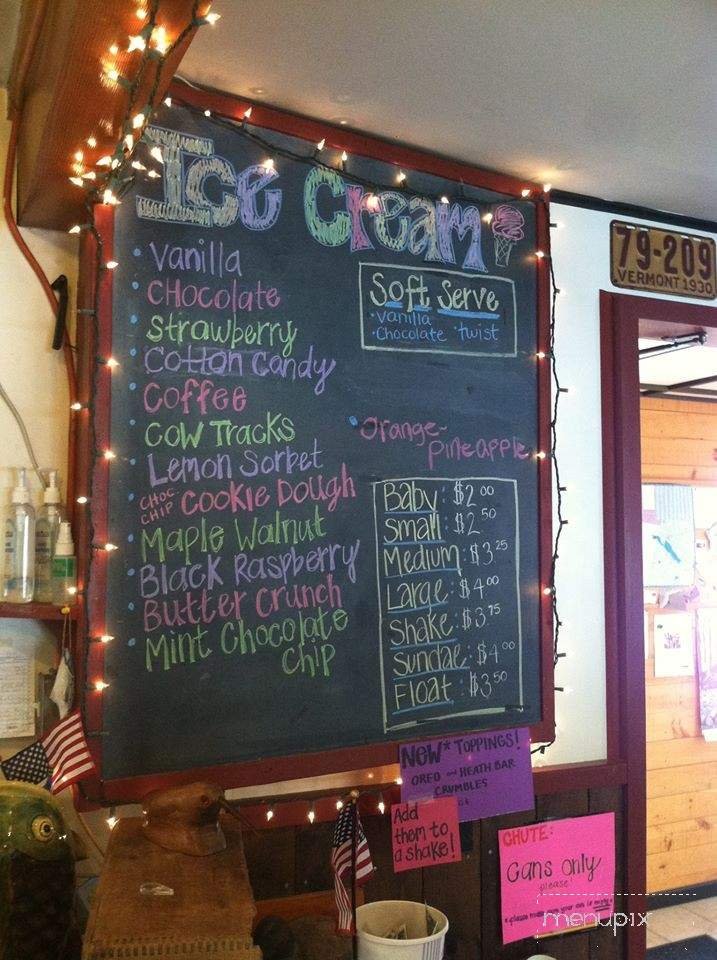 Ice Cream
Vanilla
Chocolate
Strawberry
Cotton Candy
Coffee
Cow Tracks
Lemon Sorbet
CHOC CHIP Cookie Dough
Maple Walnut
Black Raspberry
Butter Crunch
Mint Chocolate
Chip
Soft Serve
Vanilla
Chocolate twist
Orange-
pineapple
Baby: $2.00
Small: $2.50
Medium: $3.25
Large: $4.00
Shake: $3.75
Sundae: $4.00
Float: $3.50
79-209
VERMONT 1930
NEW* TOPPINGS!
OREO and HEATH BAR
CRUMBLES
Add
them to
a shake!
CHUTE:
Cans only
please
menupix